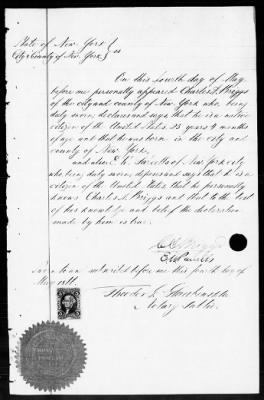 State of New York
City & County of New York } ss
On this fourth day of May
before me personally appeared Charles A. Briggs
of the city and county of New York who, being
duly sworn, declares and says that he is a native
citizen of the United States 25 years 4 months
of age and that he was born in the city and
county of New York,
and also E. W. of New York city
who being duly sworn, deposes and says that he is a
citizen of the United States that he personally
knows Charles A. Briggs and that to the best
of her knowledge and belief the declaration
made by him is true.
Sworn to and subscribed before me this fourth day of
May
Notary Public